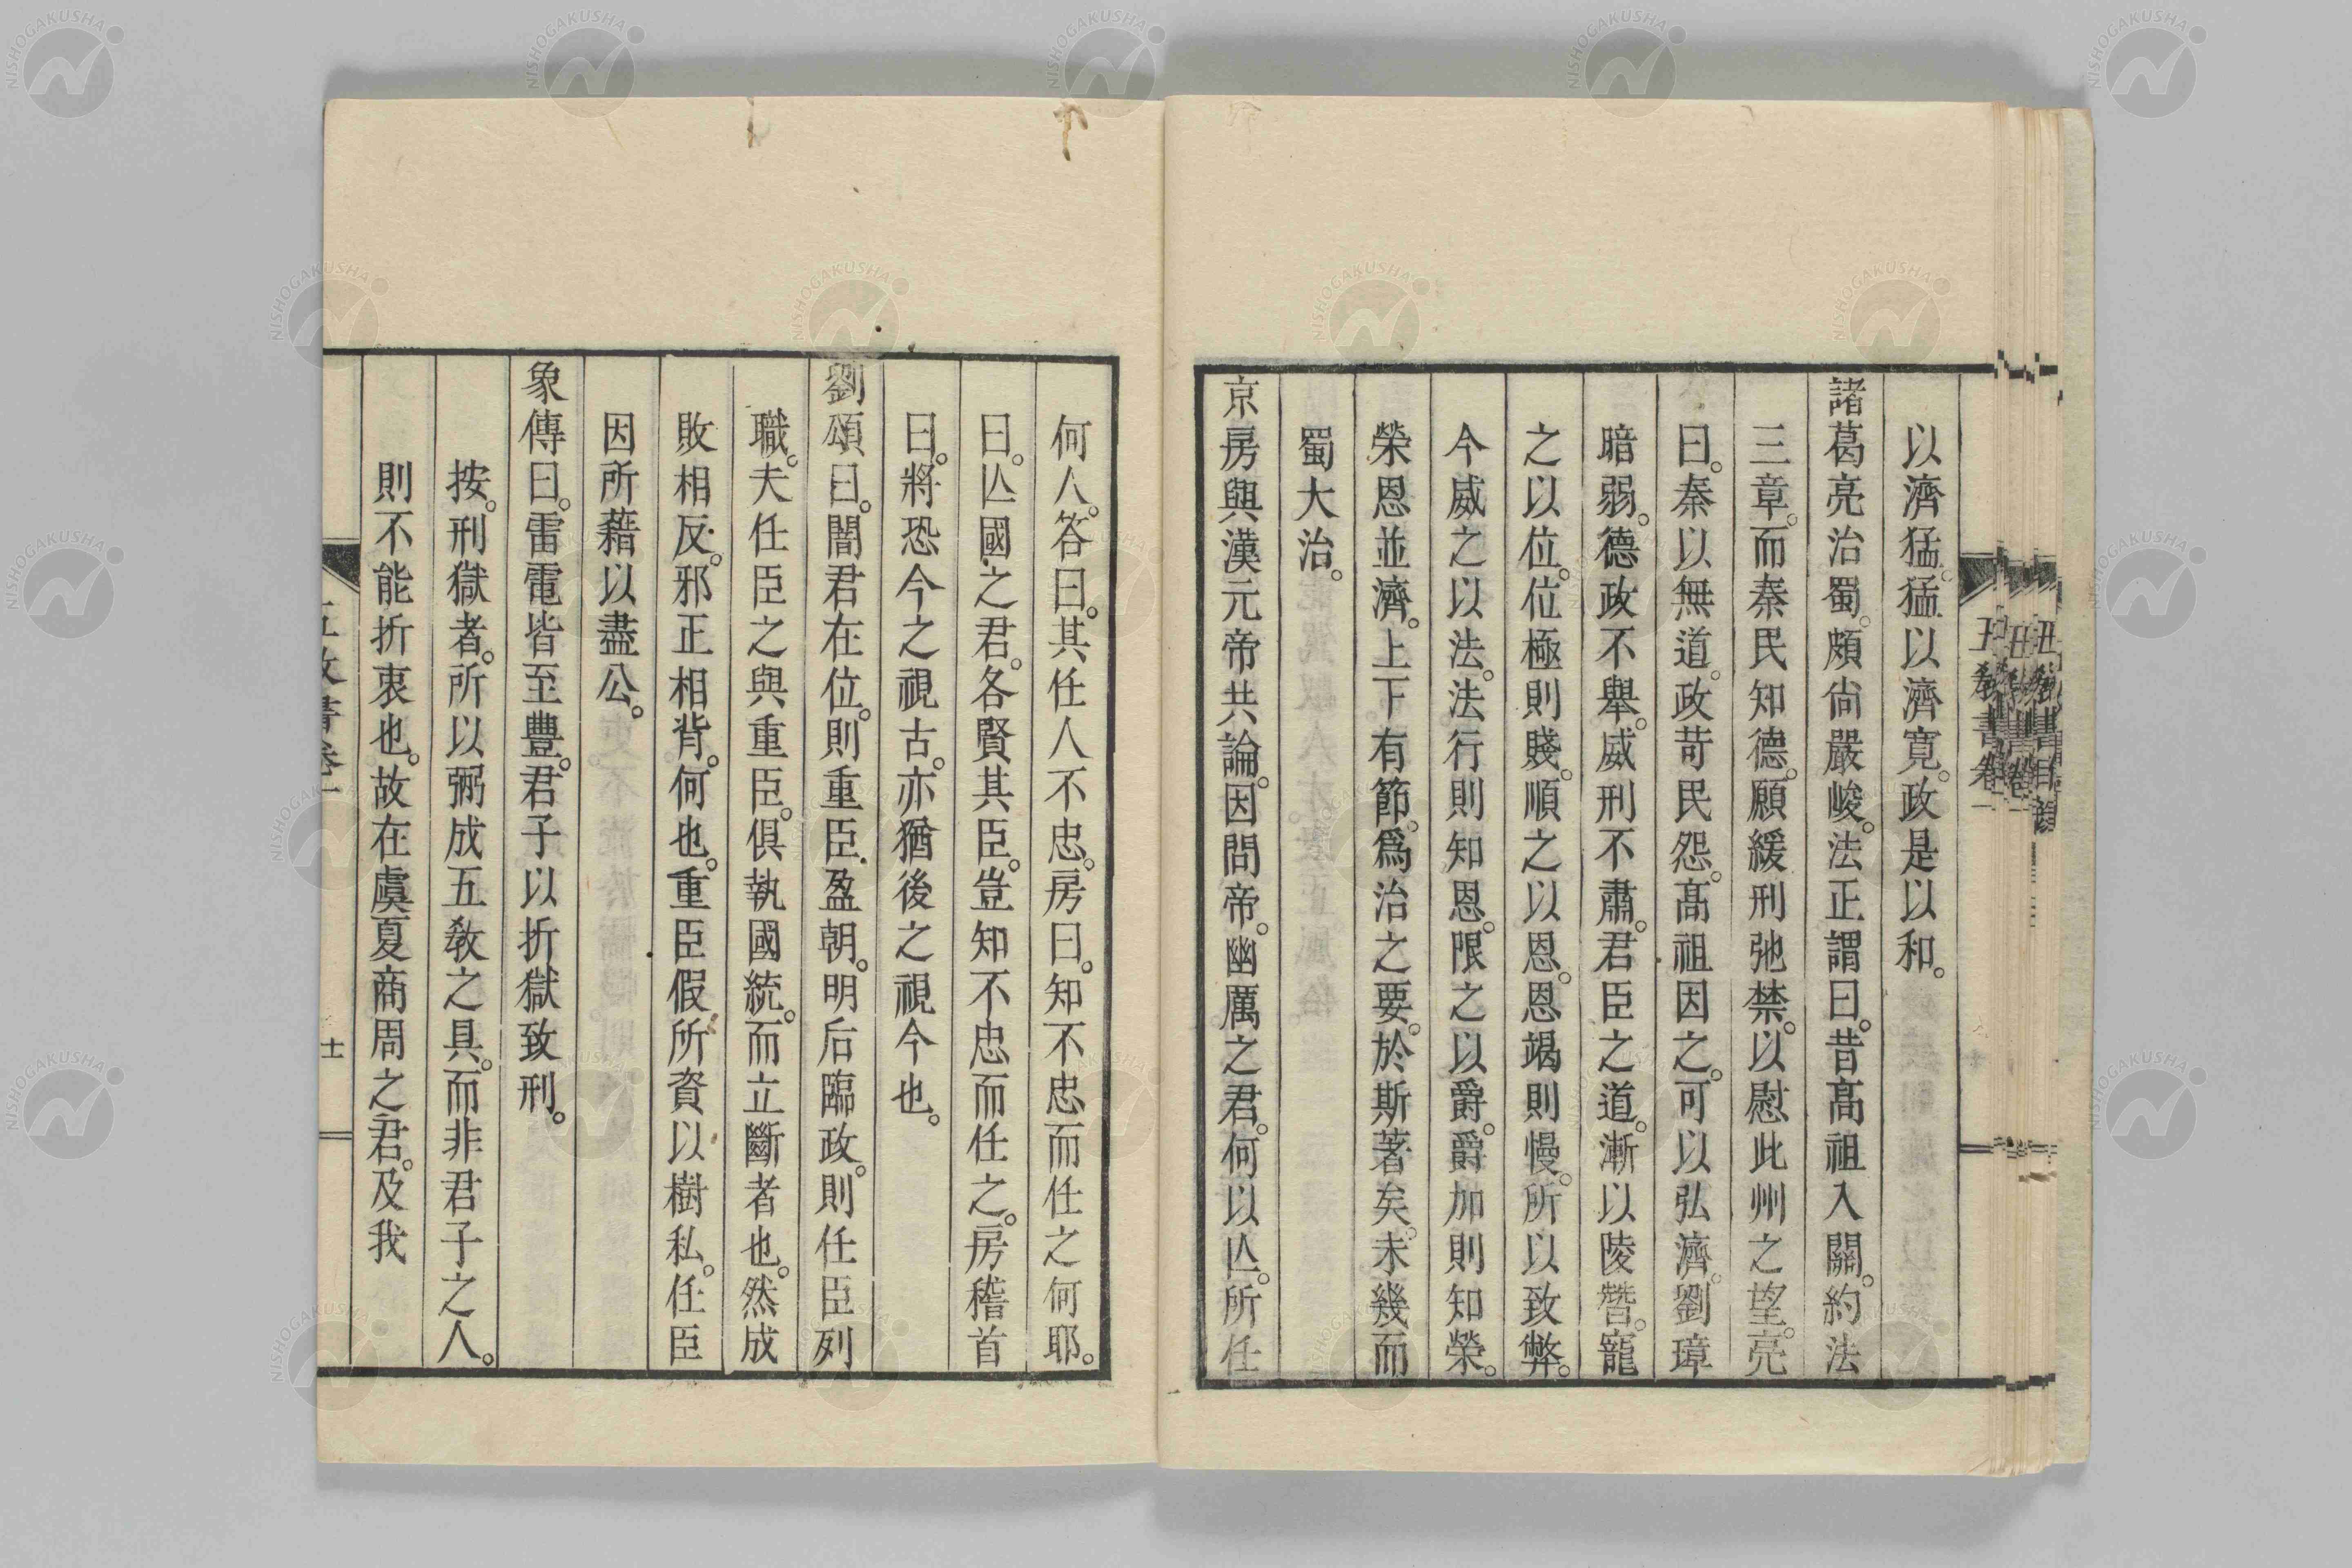 以濟猛。猛以濟寛。政是以和。
諸葛亮治蜀。頗尙嚴峻。法正謂曰。昔髙祖入關。約法
三章。而秦民知德。願緩刑弛禁。以慰此州之望。亮
曰。秦以無道。政苛民怨。髙祖因之。可以弘濟。劉璋
暗弱。德政不舉。威刑不肅。君臣之道。漸以陵替。寵
之以位。位極則賤。順之以恩。恩竭則慢。所以致弊。
今威之以法。法行則知恩。限之以爵。爵加則知榮。
榮恩並濟。上下有節。爲治之要。於斯著矣。未幾而
蜀大治。
京房與漢元帝共論。因問帝。幽厲之君。何以亾。所任
何人。答曰。其任人不忠。房曰。知不忠而任之何耶。
曰。亾國之君。各賢其臣。豈知不忠而任之。房稽首
曰。將恐今之視古。亦猶後之視今也。
劉頌曰。闇君在位。則重臣盈朝。明后臨政。則任臣列
職。夫任臣之與重臣。俱執國統。而立斷者也。然成
敗相反。邪正相背。何也。重臣假所資以樹私。任臣
因所藉以盡公。
象傳曰。雷電皆至豐。君子以折獄致刑。
按。刑獄者。所以弼成五敎之具。而非君子之人。
則不能折衷也。故在虞夏商周之君。及我
NISHOGAKUSHA